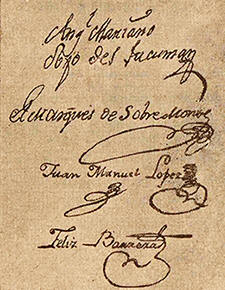 Ang.l Manzano
Pozo del Tucuman
El Marqués de Sobre Monte
Juan Manuel Lopez
Feliz Banzeza